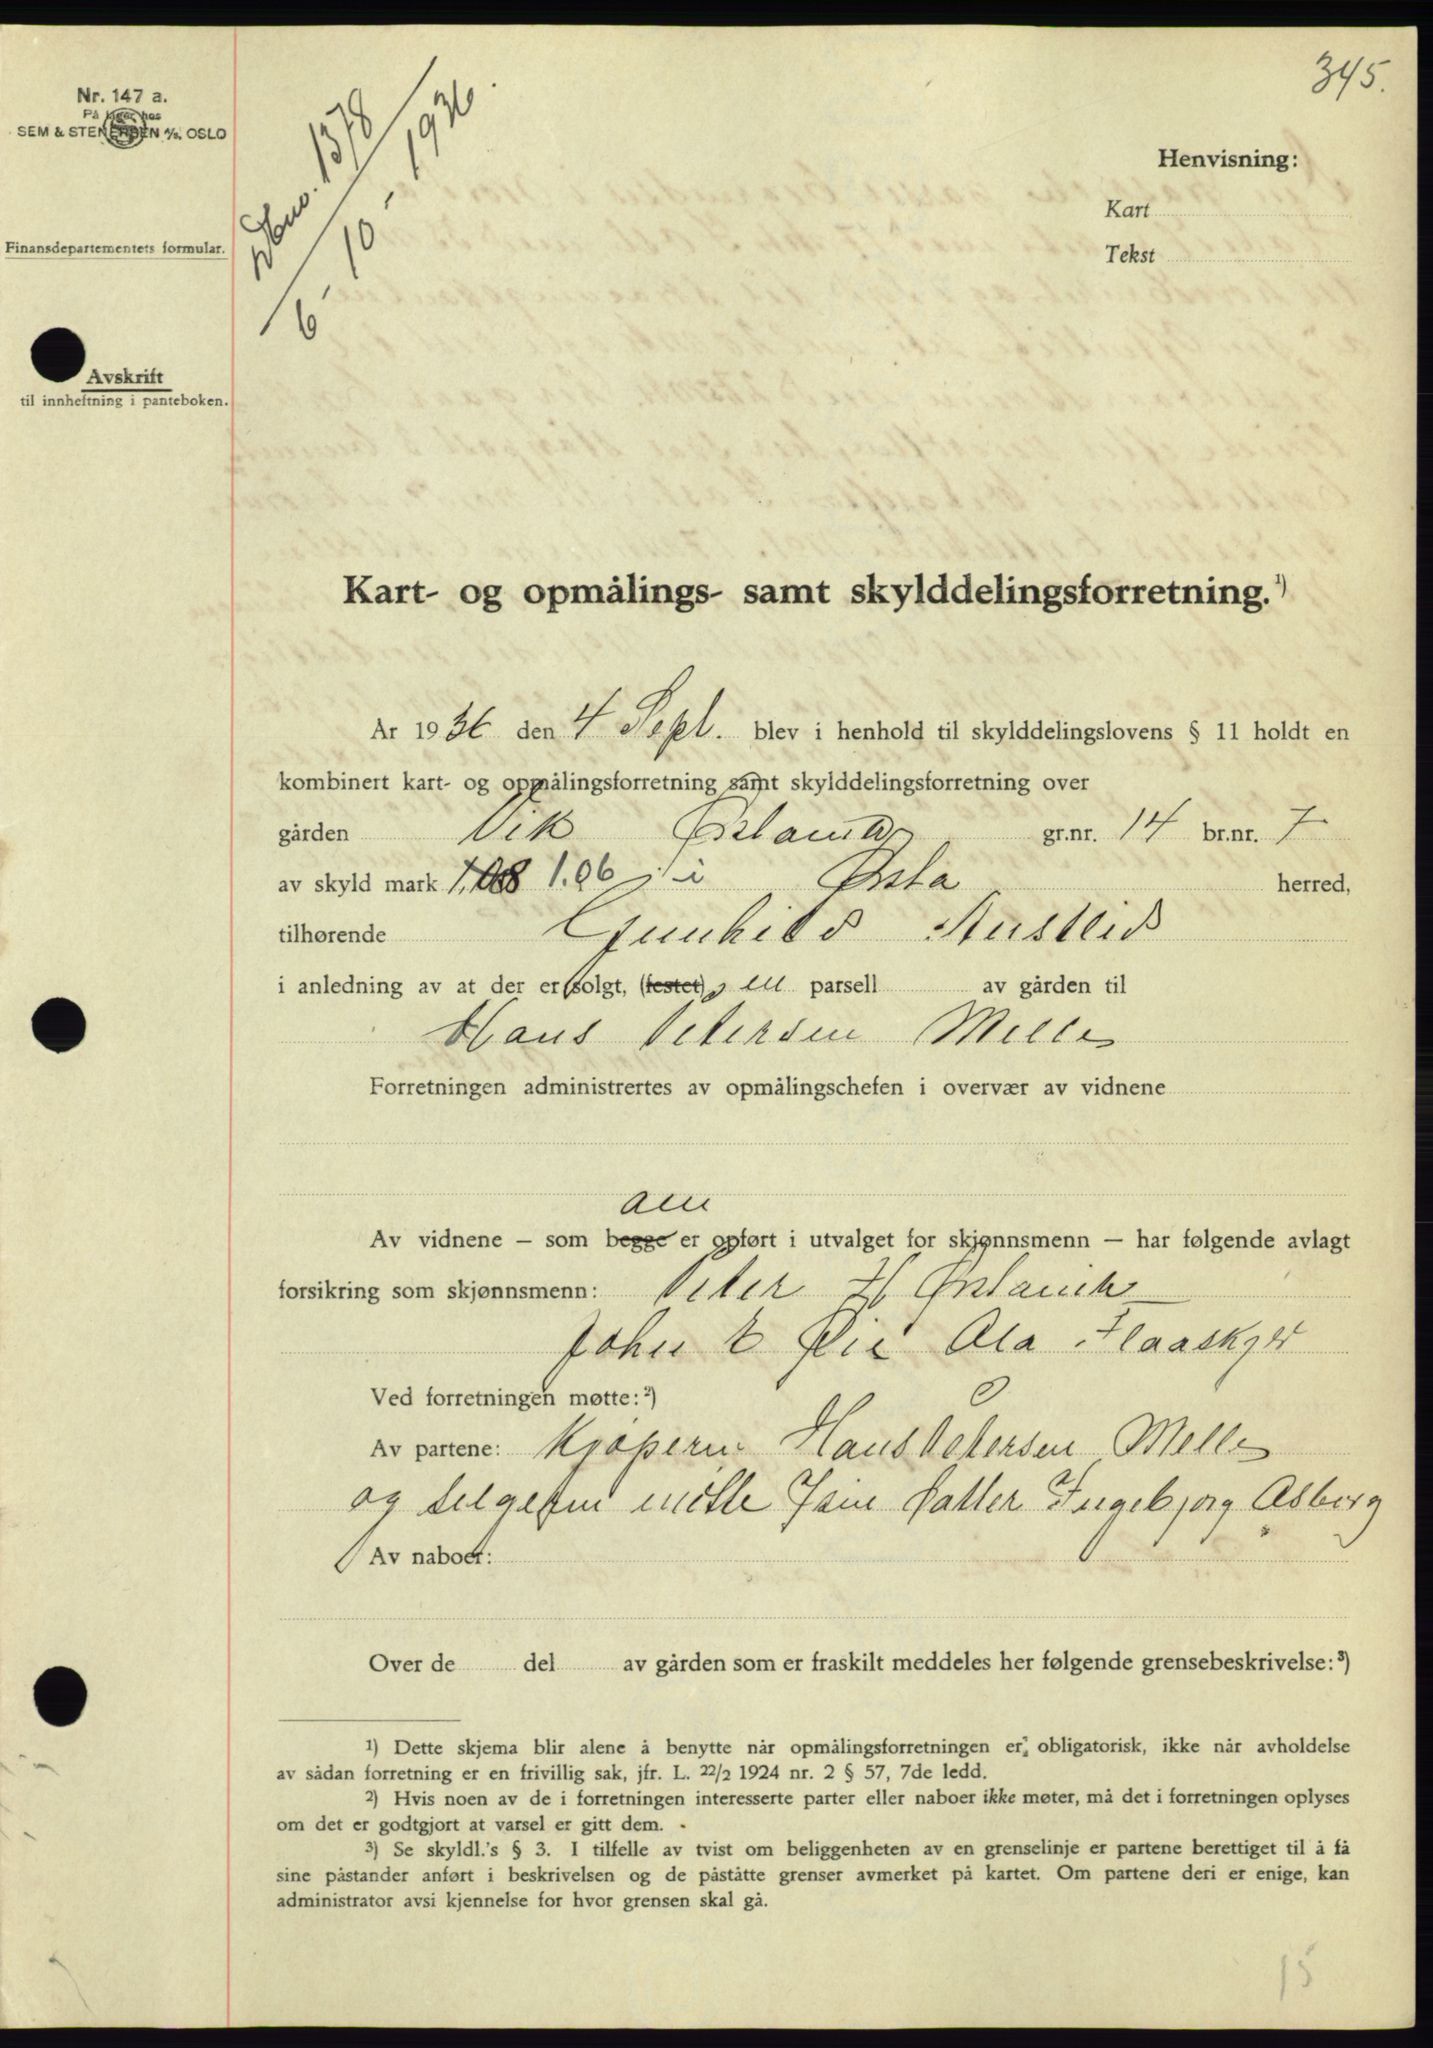 345.
Nr. 147 a.
På lager hos
SEM & STENERSEN A/S. OSLO
Finansdepartementets formular.
Avskrift
til innheftning i panteboken.
1378
6 - 10 - 1936.
Henvisning:
Kart
Tekst
Kart- og opmålings- samt skylddelingsforretning.¹)
År 1936 den 4 Sept. blev i henhold til skylddelingslovens § 11 holdt en
kombinert kart- og opmålingsforretning samt skylddelingsforretning over
gården Vik Ørstavik gr.nr. 14 br.nr. 7
av skyld mark 1,08 1.06 i Ørsta herred,
tilhørende Gunhild Austlid
i anledning av at der er solgt, (festet), en parsell av gården til
Hans Petersen Melle
Forretningen administrertes av opmålingschefen i overvær av vidnene
alle
Av vidnene – som begge er opført i utvalget for skjønnsmenn – har følgende avlagt
forsikring som skjønnsmenn: Peter H Ørstavik
John E Øie Ola Flaaskjer
Ved forretningen møtte:²)
Av partene: Kjøperen Hans Petersen Melle
og selgeren møtte Datter Ingebjørg Asberg
Av naboer:
Over de del av gården som er fraskilt meddeles her følgende grensebeskrivelse:³)
¹) Dette skjema blir alene å benytte når opmålingsforretningen er obligatorisk, ikke når avholdelse
av sådan forretning er en frivillig sak, jfr. L. 22/2 1924 nr. 2 § 57, 7de ledd.
²) Hvis noen av de i forretningen interesserte parter eller naboer ikke møter, må det i forretningen oplyses
om det er godtgjort at varsel er gitt dem.
³) Se skyldl.'s § 3. I tilfelle av tvist om beliggenheten av en grenselinje er partene berettiget til å få
sine påstander anført i beskrivelsen og de påståtte grenser avmerket på kartet. Om partene deri er enige, kan
administrator avsi kjennelse for hvor grensen skal gå.
15